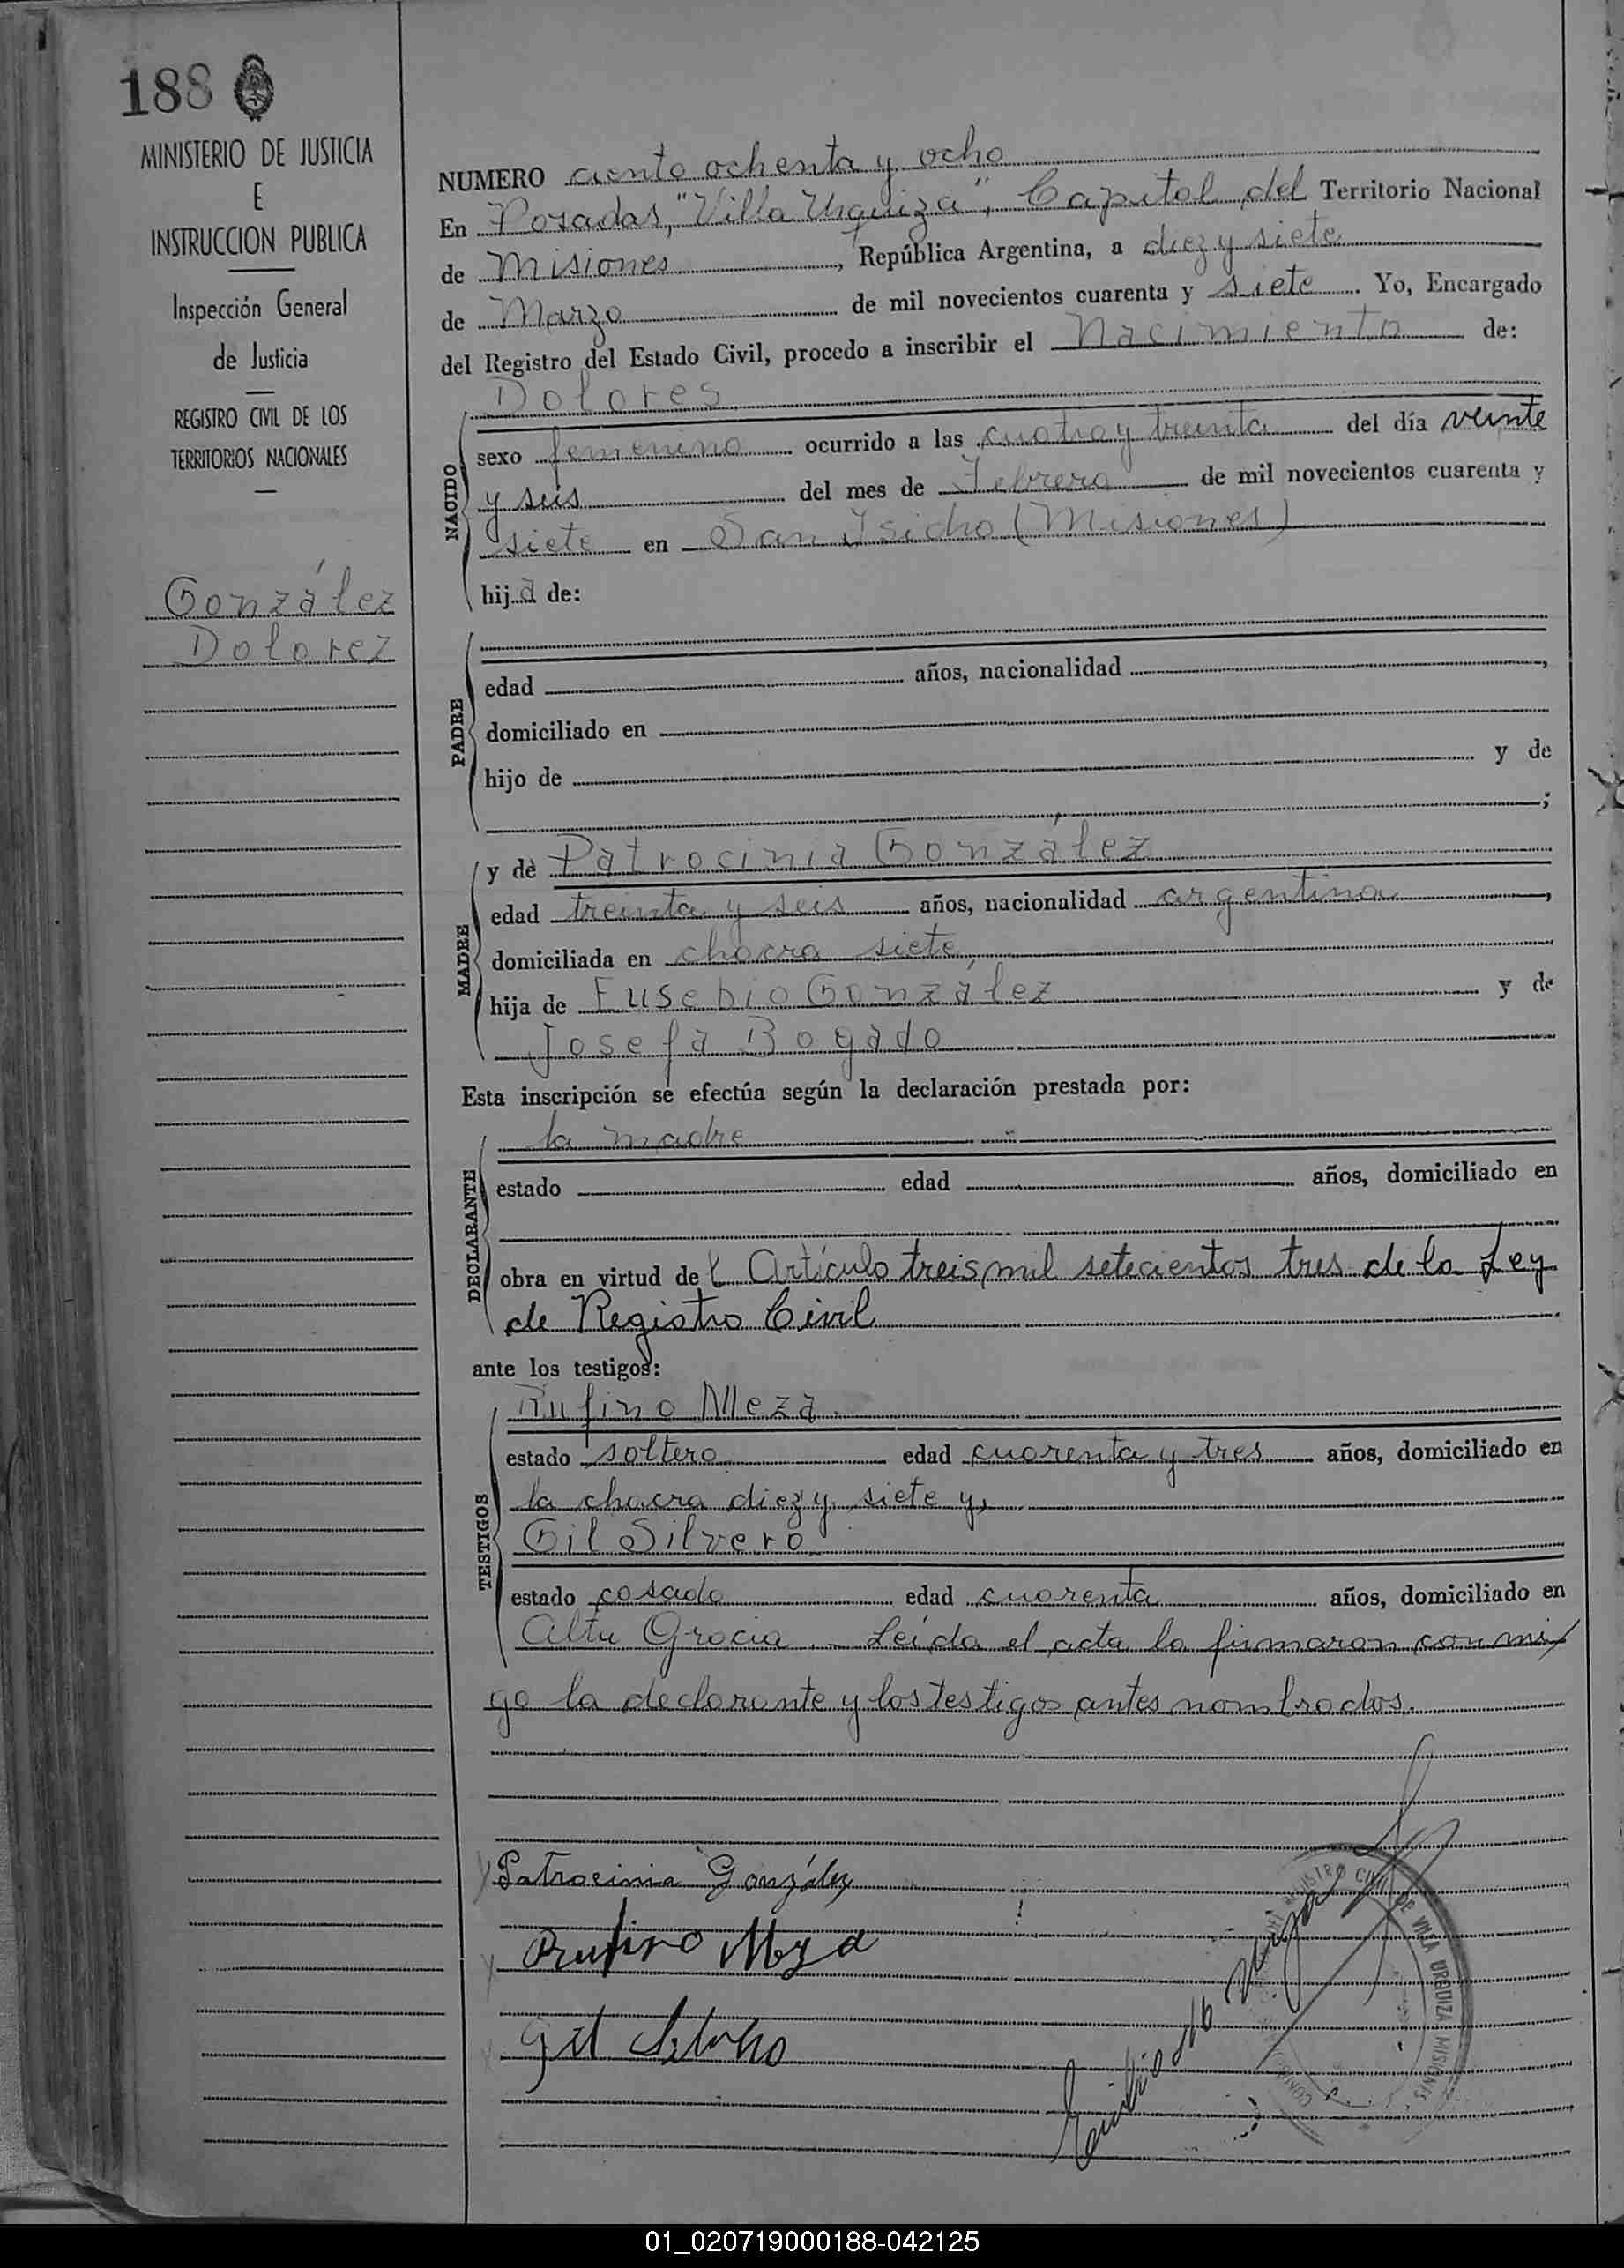 188
MINISTERIO DE JUSTICIA
E
INSTRUCCION PUBLICA
Inspección General
de Justicia
REGISTRO CIVIL DE LOS
TERRITORIOS NACIONALES
González
Dolorez
NUMERO ciento ochenta y ocho
En Posadas, "Villa Urquiza", Capital del Territorio Nacional
de Misiones, República Argentina, a diez y siete
de Marzo de mil novecientos cuarenta y siete. Yo, Encargado
del Registro del Estado Civil, procedo a inscribir el Nacimiento de:
NACIDO
Dolores
sexo femenino ocurrido a las cuatro y treinta del día veinte
y seis del mes de Febrero de mil novecientos cuarenta y
siete en San Isidro (Misiones)
hija de:
PADRE
edad años, nacionalidad ,
domiciliado en
hijo de y de
;
MADRE
y de Patrocinia González
edad treinta y seis años, nacionalidad argentina,
domiciliada en chacra siete
hija de Eusebio González y de
Josefa Bogado
Esta inscripción se efectúa según la declaración prestada por:
DECLARANTE
la madre
estado edad años, domiciliado en
obra en virtud del Artículo treis mil setecientos tres de la Ley
de Registro Civil
ante los testigos:
TESTIGOS
Rufino Meza
estado soltero edad cuarenta y tres años, domiciliado en
la chacra diez y siete y,
Gil Silvero
estado casado edad cuarenta años, domiciliado en
Alta Gracia. - Leída el acta la firmaron conmi
go la declarante y los testigos antes nombrados.
Patrocinia González
Rufino Meza
Gil Silvero
REGISTRO CIVIL DE VILLA URQUIZA MISIONES
01_020719000188-042125